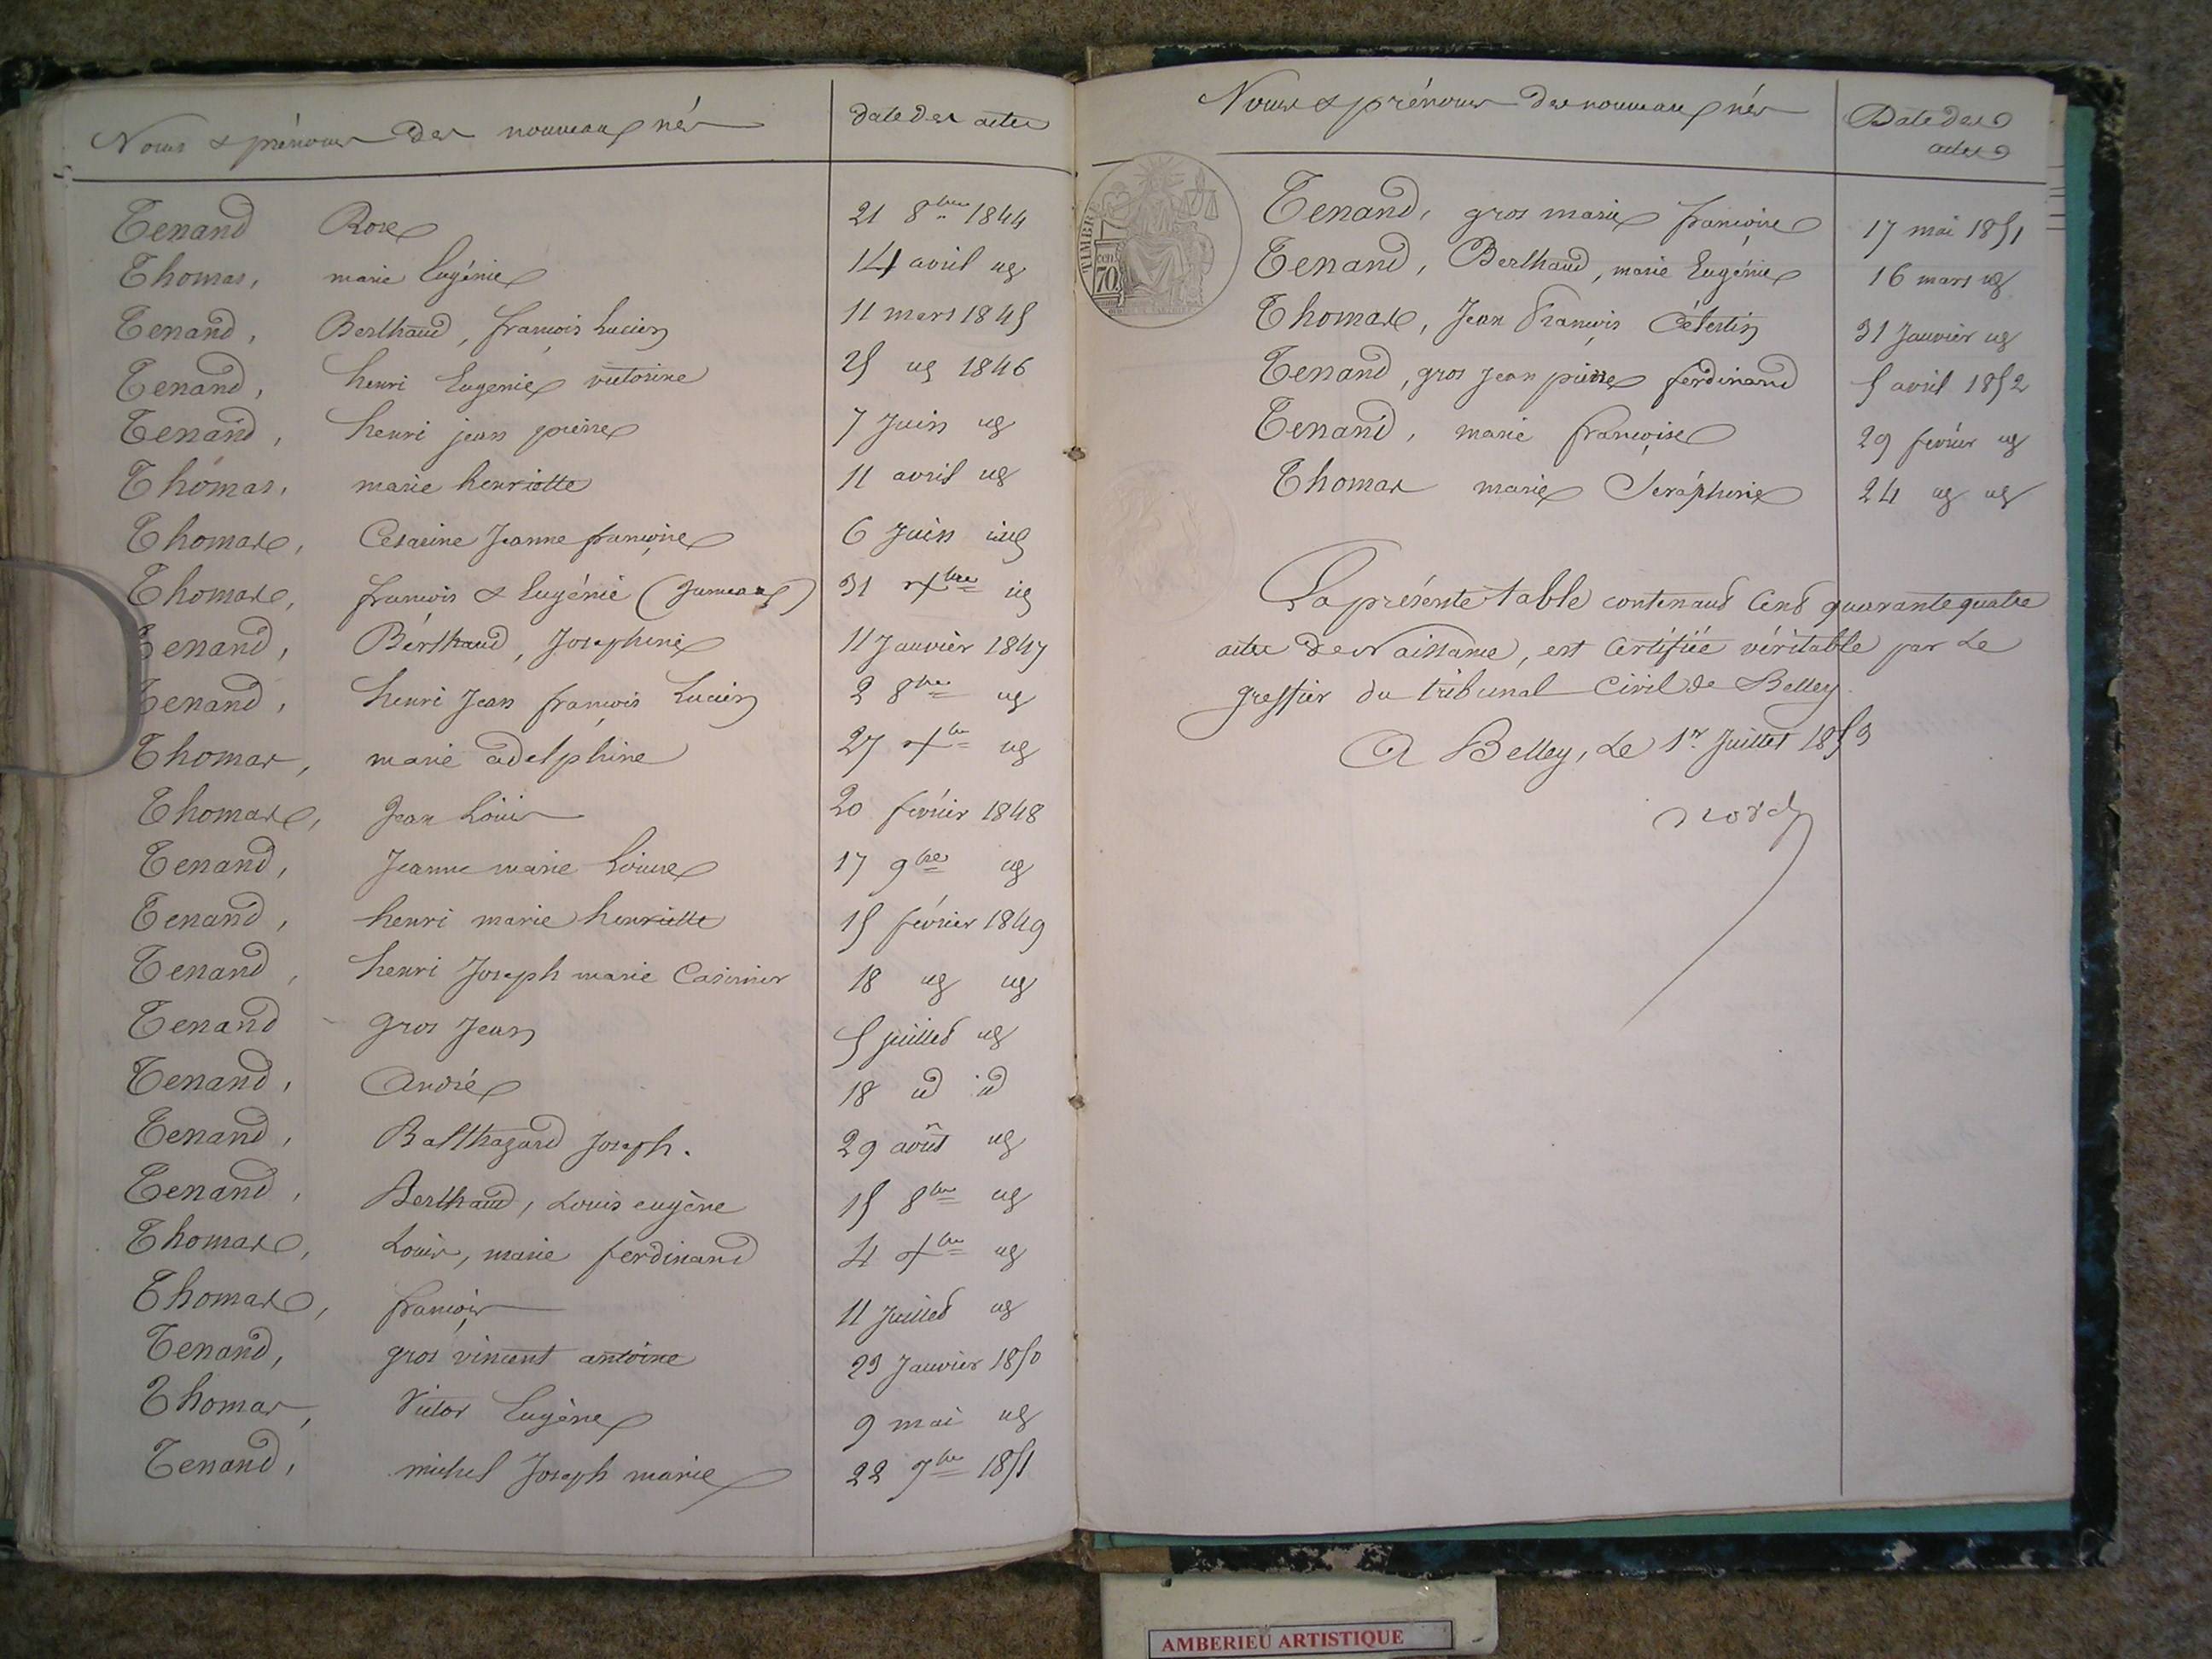 Noms & prénoms des nouveaux nés date des actes
Tenand Rose 21 8bre 1844
Thomas, marie Eugénie 14 avril id
Tenand, Berthaud, françois Lucien 11 mars 1845
Tenand, henri Eugenie victorine 25 id 1846
Tenand, henri jean pierre 7 Juin id
Thomas, marie henriette 11 avril id
Thomas, Cesarine Jeanne françoise 6 Juin id
Thomas, françois & Eugénie (Jumeaux) 31 xbre id
Tenand, Berthaud, Josephine 11 Janvier 1847
Tenand, henri Jean françois Lucien 2 8bre id
Thomas, marie adelphine 27 xbre id
Thomas, Jean Louis 20 février 1848
Tenand, Jeanne marie Louise 17 9bre id
Tenand, henri marie henriette 15 février 1849
Tenand, henri Joseph marie Casimir 18 id id
Tenand gros Jean 5 juillet id
Tenand, André 18 id id
Tenand, Balthazard Joseph. 29 août id
Tenand, Berthaud, Louis eugène 15 8bre id
Thomas, Louis, marie ferdinand 4 xbre id
Thomas, françois 11 Juillet id
Tenand, gros vincent antoine 23 Janvier 1850
Thomas, Victor Eugène 9 mai id
Tenand, michel Joseph marie 22 7bre 1851
Noms & prénoms des nouveaux nés Date des
actes
TIMBRE
70
Tenand, gros marie françoise 17 mai 1851
Tenand, Berthaud, marie Eugénie 16 mars id
Thomas, Jean François Célestin 31 Janvier id
Tenand, gros Jean pierre ferdinand 5 avril 1852
Tenand, marie françoise 29 février id
Thomas marie Séraphine 24 id id
La présente table contenant Cent quarante quatre
actes de Naissance, est Certifiée véritable par Le
greffier du tribunal Civil de Belley.
A Belley, Le 1er Juillet 1853
AMBERIEU ARTISTIQUE